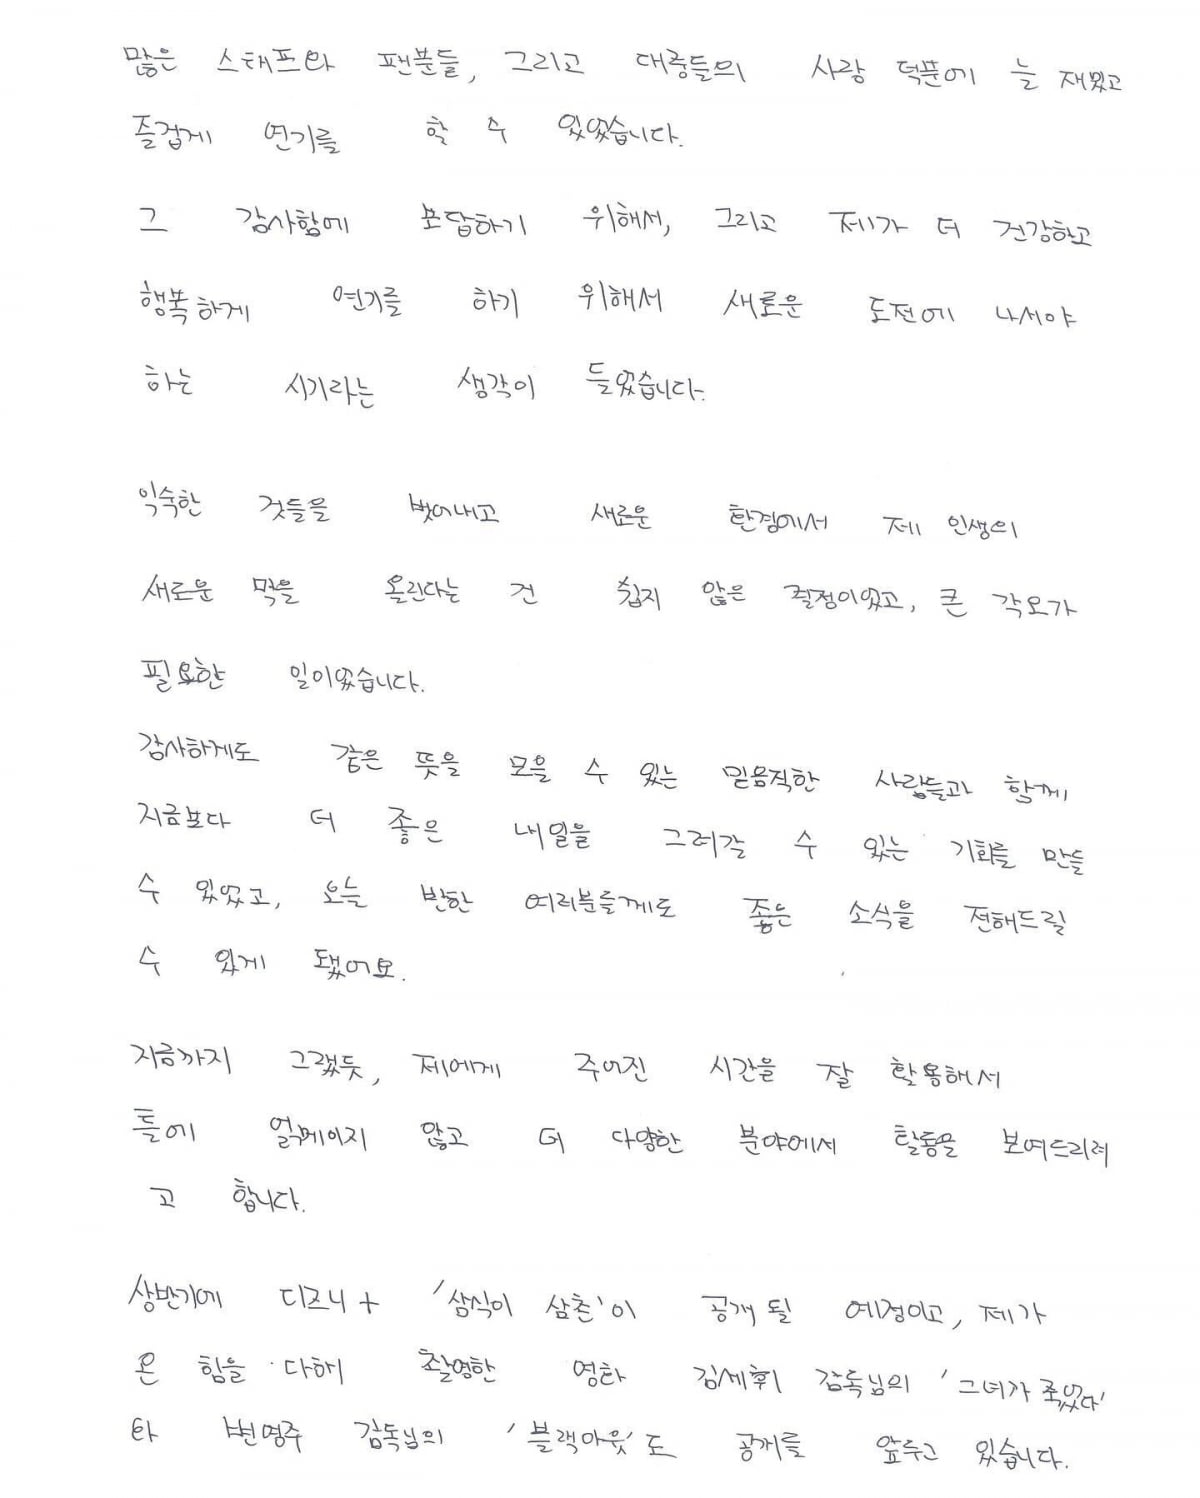 많은 스태프와 팬분들, 그리고 대중들의 사랑 덕분에 늘 재밌고
즐겁게 연기를 할 수 있었습니다.
그 감사함에 보답하기 위해서, 그리고 제가 더 건강하고
행복하게 연기를 하기 위해서 새로운 도전에 나서야
하는 시기라는 생각이 들었습니다.
익숙한 것들을 벗어내고 새로운 환경에서 제 인생의
새로운 막을 올린다는 건 쉽지 않은 결정이었고, 큰 각오가
필요한 일이었습니다.
감사하게도 같은 뜻을 모을 수 있는 믿음직한 사람들과 함께
지금보다 더 좋은 내일을 그려갈 수 있는 기회를 만들
수 있었고, 오늘 반한 여러분들께도 좋은 소식을 전해드릴
수 있게 됐어요.
지금까지 그랬듯, 제에게 주어진 시간을 잘 활용해서
틀에 얽메이지 않고 더 다양한 분야에서 활동을 보여드리려
고 합니다.
상반기에 디즈니+ '삼식이 삼촌'이 공개 될 예정이고, 제가
온 힘을 다해 촬영한 영화 김세휘 감독님의 '그녀가 죽었다'
와 변영주 감독님의 '블랙아웃'도 공개를 앞두고 있습니다.